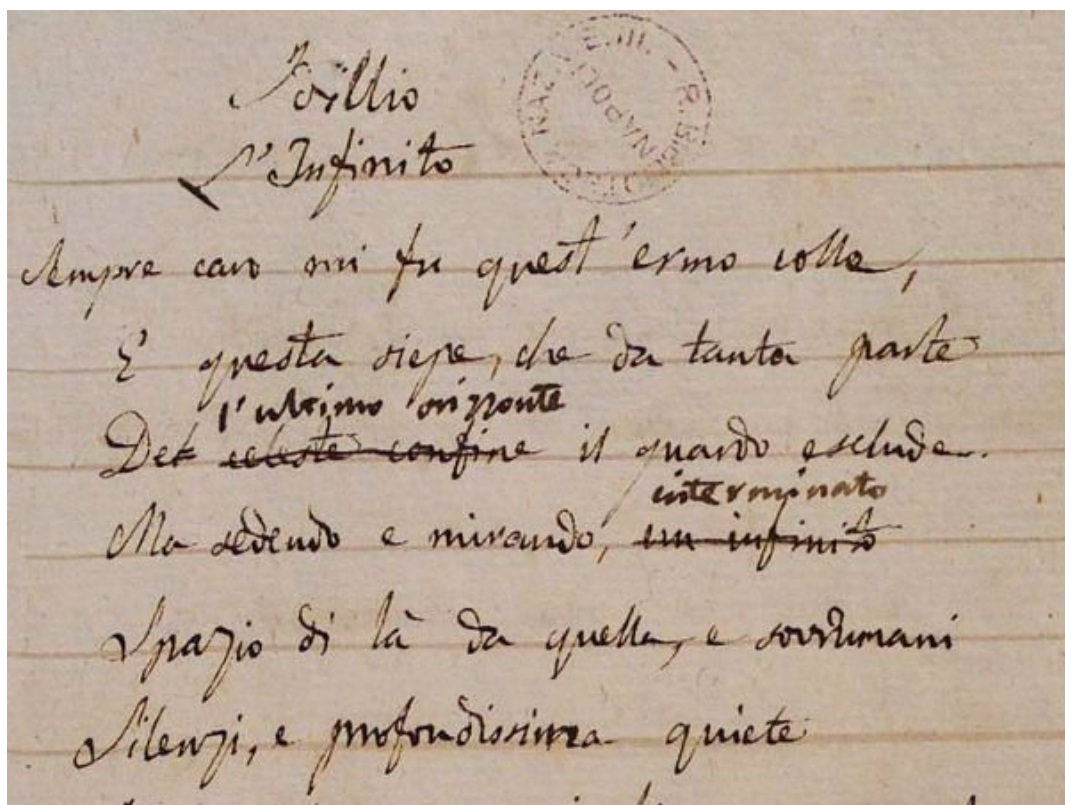 Idillio
L'Infinito
Sempre caro mi fu quest'ermo colle,
E questa siepe, che da tanta parte
l'ultimo orizzonte
Del celeste confine il guardo esclude.
interminato
Ma sedendo e mirando, un infinito
Spazio di là da quella, e sovrumani
Silenzi, e profondissima quiete